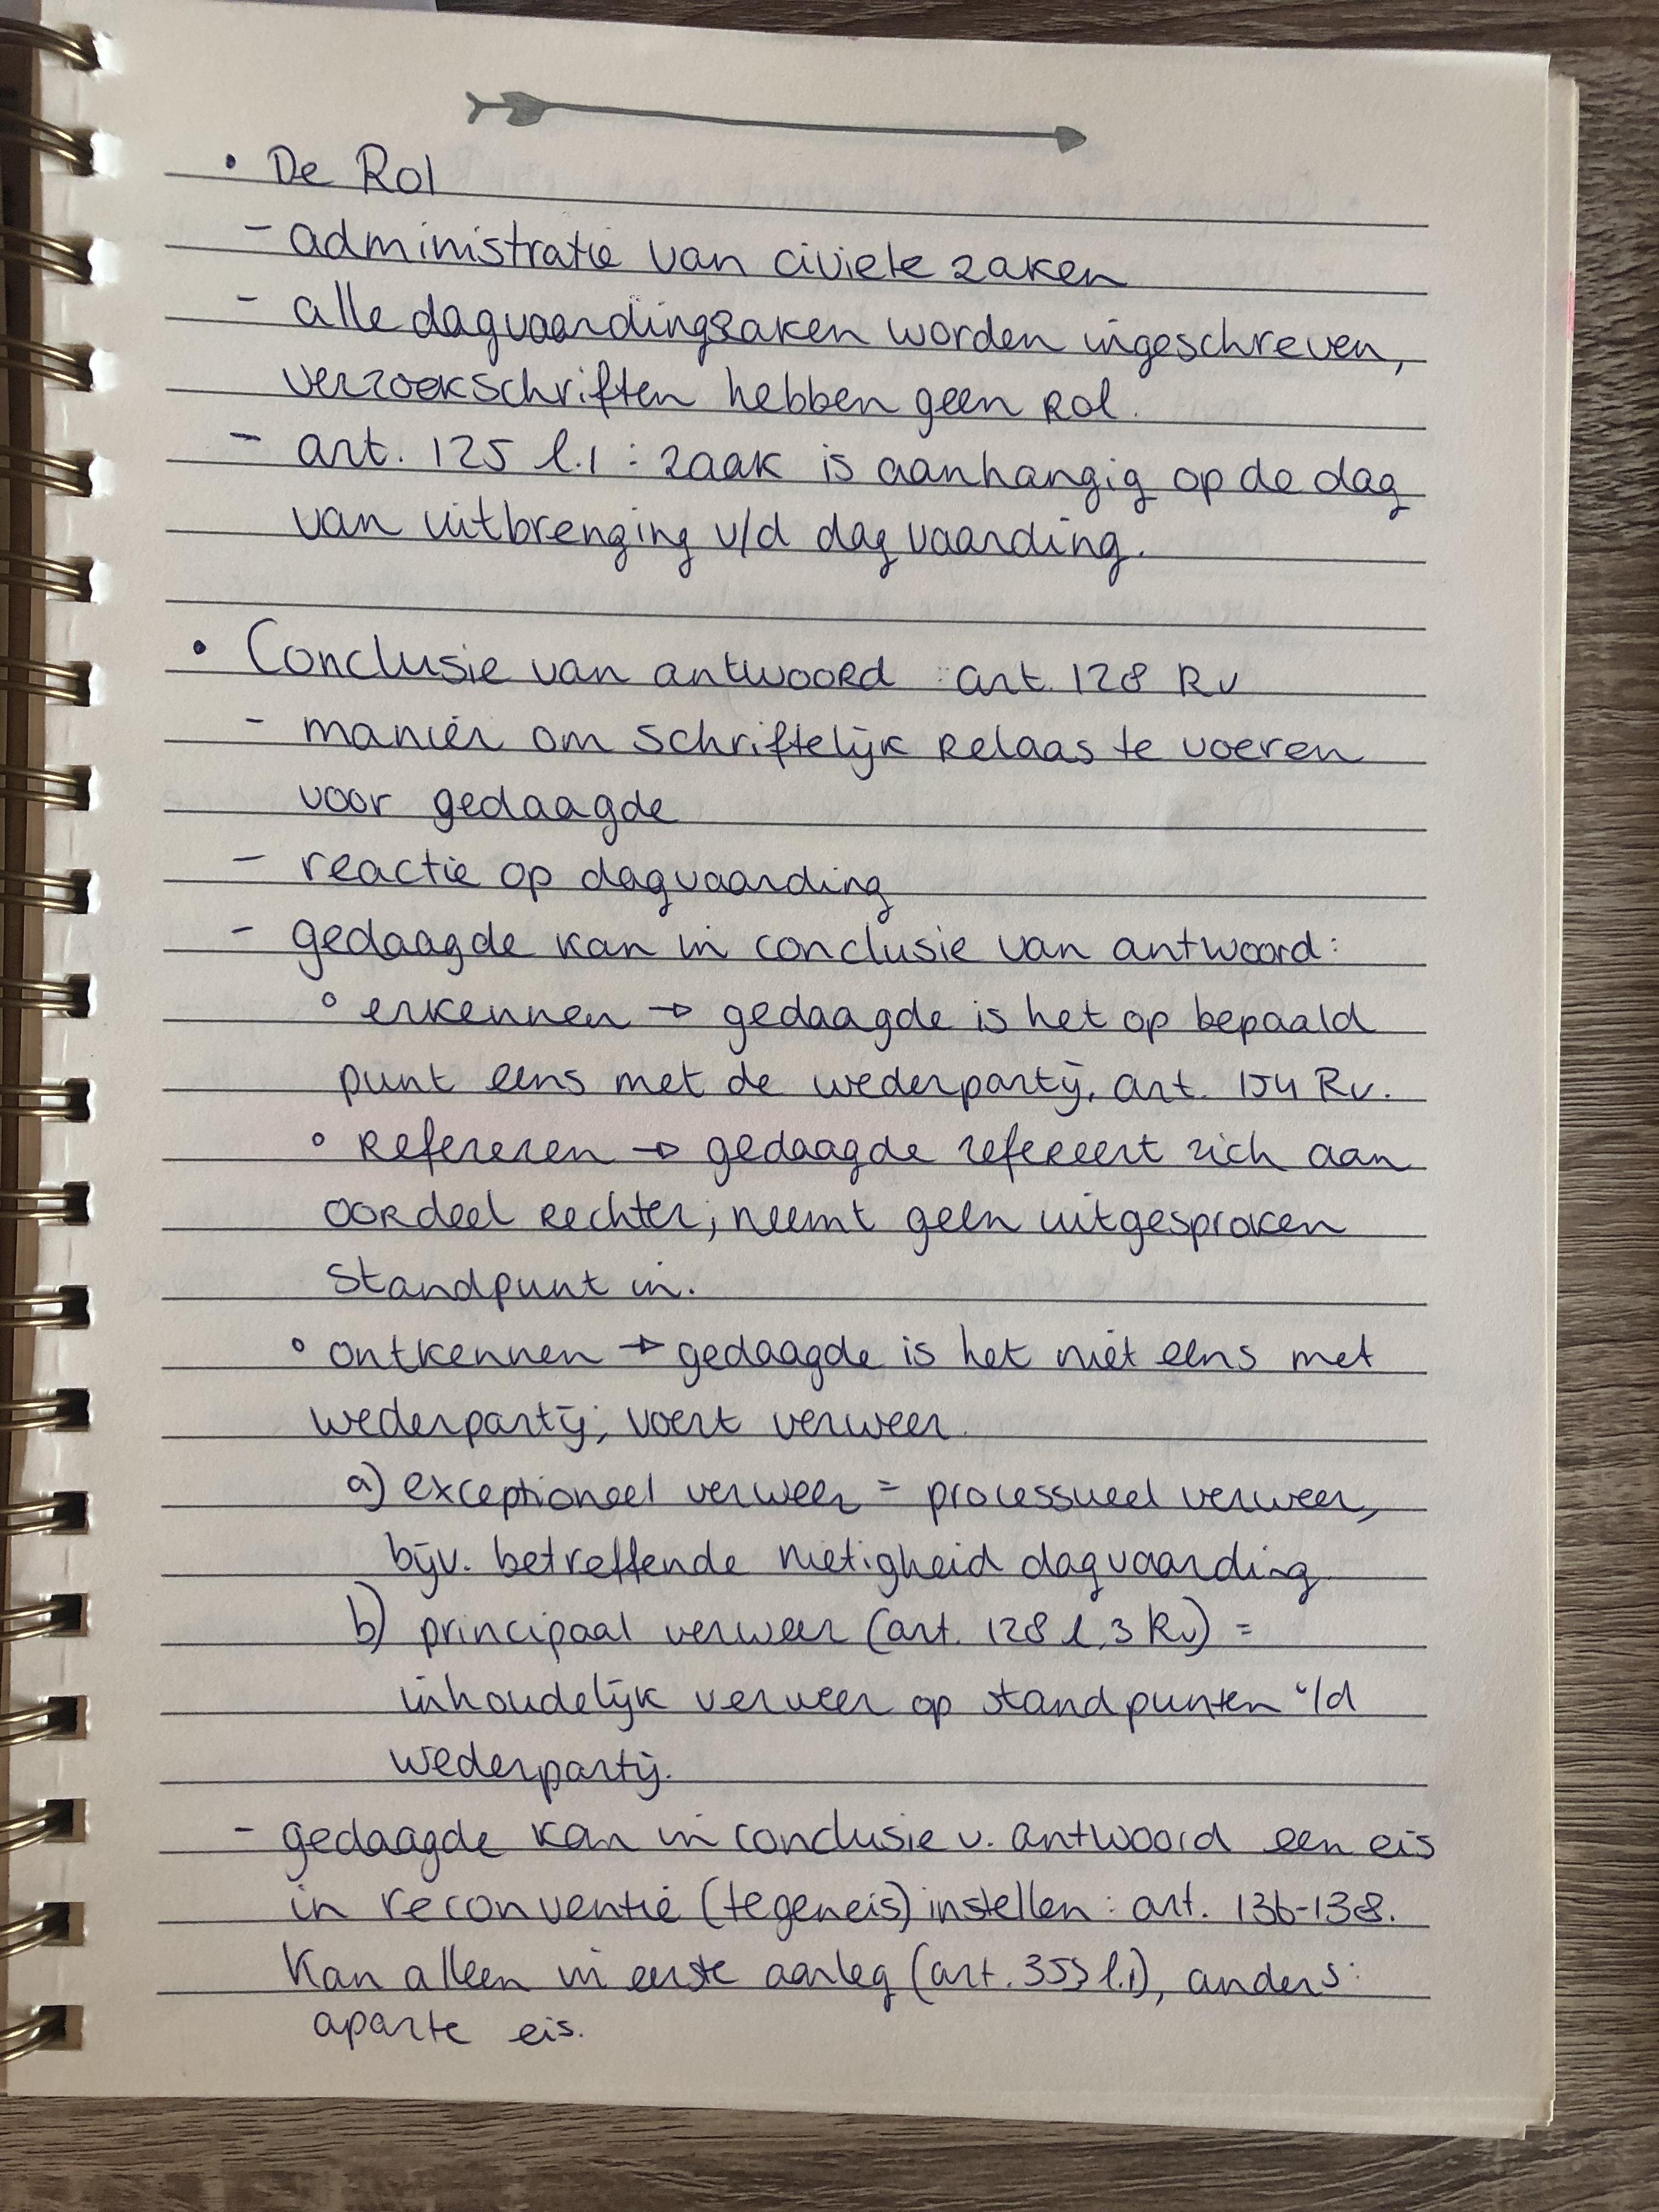 • De Rol
- administratie van civiele zaken
- alle dagvaardingszaken worden ingeschreven,
verzoekschriften hebben geen Rol.
- art. 125 l.1 : zaak is aanhangig op de dag
van uitbrenging v/d dagvaarding.
• Conclusie van antwoord : art. 128 Rv
- manier om schriftelijk relaas te voeren
voor gedaagde
- reactie op dagvaarding
- gedaagde kan in conclusie van antwoord:
° erkennen → gedaagde is het op bepaald
punt eens met de wederpartij, art. 154 Rv.
° Refereren → gedaagde refereert zich aan
oordeel rechter; neemt geen uitgesproken
standpunt in.
° ontkennen → gedaagde is het niet eens met
wederpartij; voert verweer.
a) exceptioneel verweer = processueel verweer,
bijv. betreffende nietigheid dagvaarding
b) principaal verweer (art. 128 l.3 Rv) =
inhoudelijk verweer op standpunten v/d
wederpartij.
- gedaagde kan in conclusie v. antwoord een eis
in reconventie (tegeneis) instellen : art. 136-138.
Kan alleen in eerste aanleg (art. 353 l.1), anders:
aparte eis.